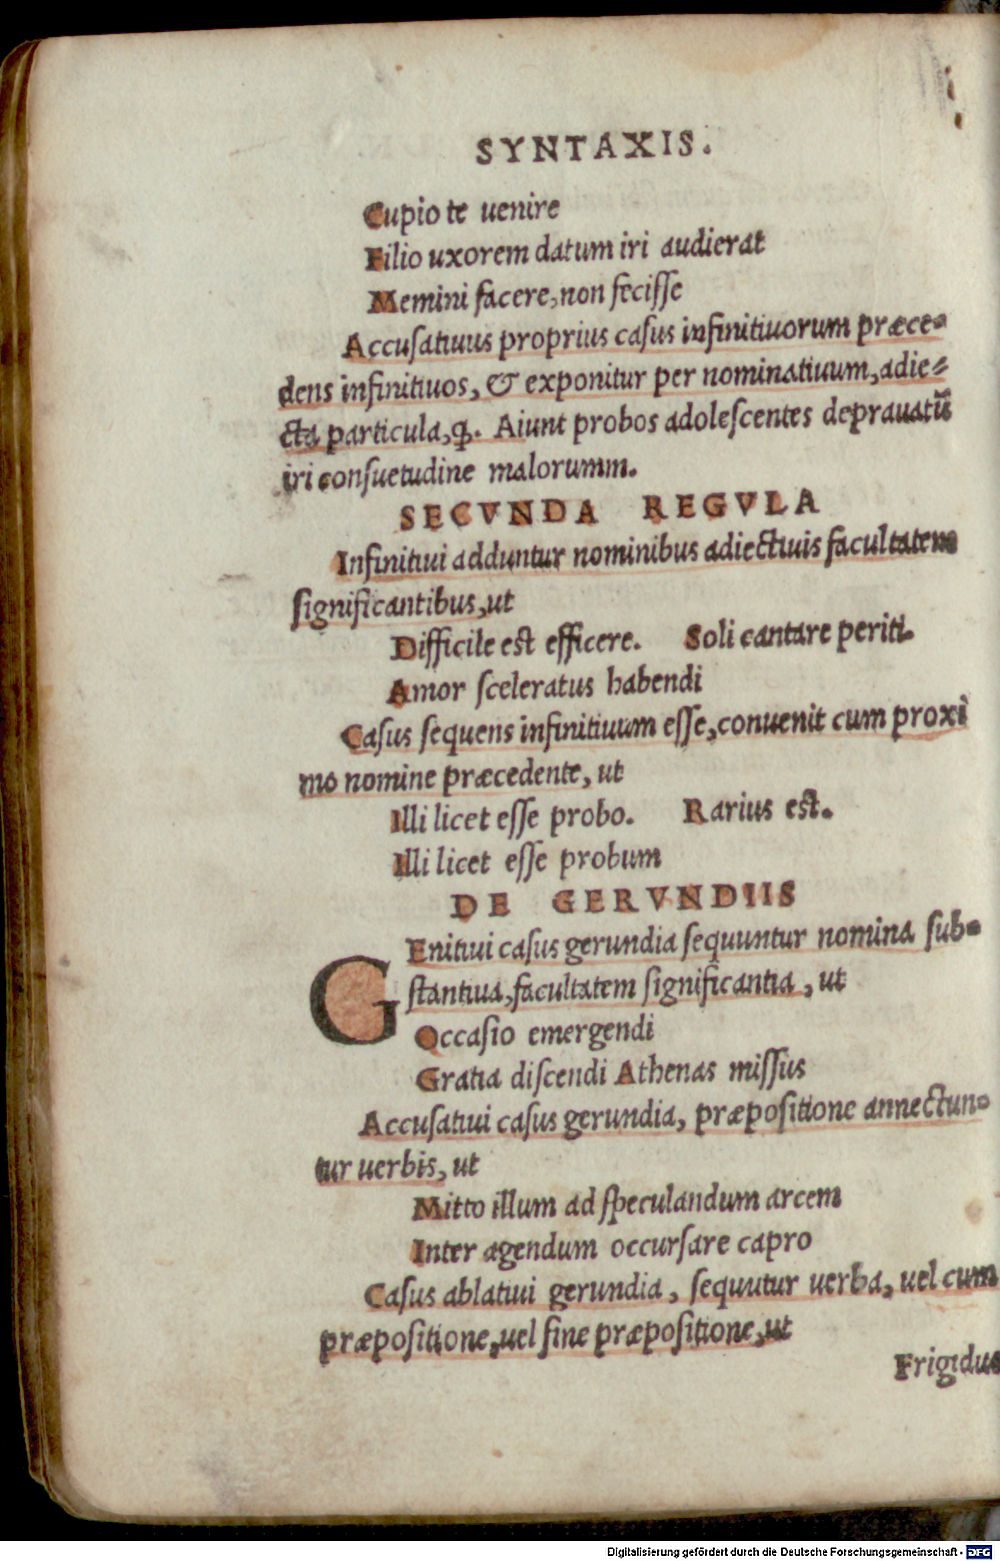 SYNTAXIS.
Cupio te uenire
Filio uxorem datum iri audierat
Memini facere, non fecisse
Accusatiuus proprius casus infinitiuorum præce-
dens infinitiuos, & exponitur per nominatiuum, adie-
cta particula, ꝙ. Aiunt probos adolescentes deprauatū
iri consuetudine malorumm.
SECVNDA REGVLA
Infinitiui adduntur nominibus adiectiuis facultatem
significantibus, ut
Difficile est efficere. Soli cantare periti.
Amor sceleratus habendi
Casus sequens infinitiuum esse, conuenit cum proxi
mo nomine præcedente, ut
Illi licet esse probo. Rarius est.
Illi licet esse probum
DE GERVNDIIS
GEnitiui casus gerundia sequuntur nomina sub-
stantiua, facultatem significantia, ut
Occasio emergendi
Gratia discendi Athenas missus
Accusatiui casus gerundia, præpositione annectun-
tur uerbis, ut
Mitto illum ad speculandum arcem
Inter agendum occursare capro
Casus ablatiui gerundia, sequutur uerba, uel cum
præpositione, uel sine præpositione, ut
Frigidus
Digitalisierung gefördert durch die Deutsche Forschungsgemeinschaft - DFG